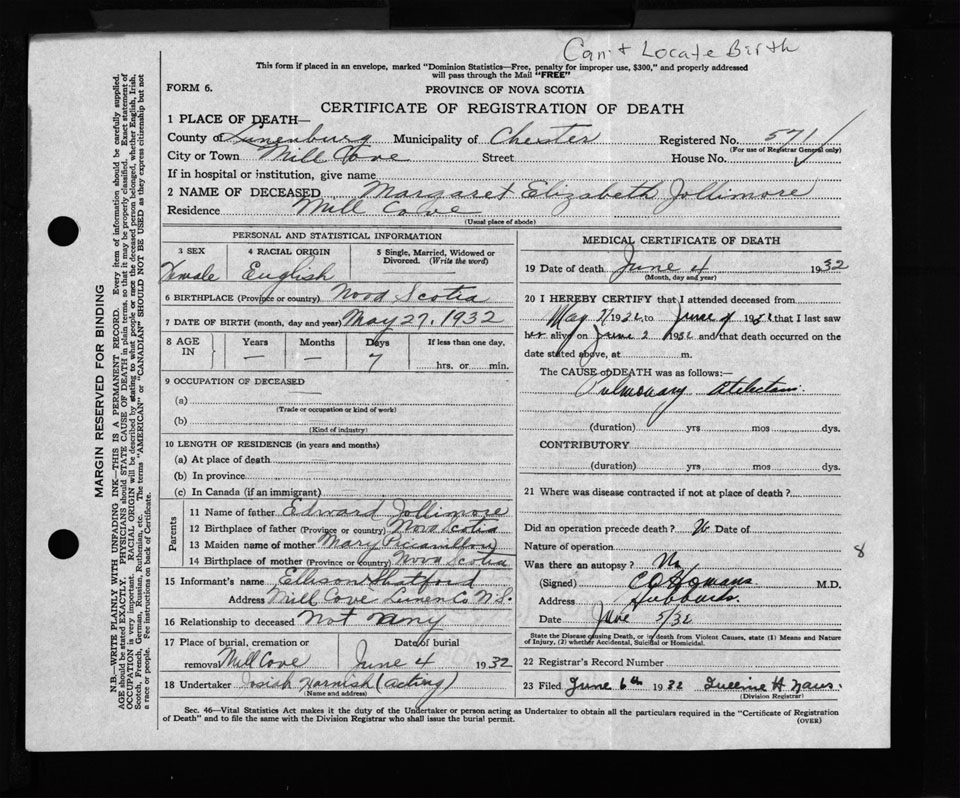 Can't Locate Birth
This form if placed in an envelope, marked "Dominion Statistics—Free, penalty for improper use, $300," and properly addressed
will pass through the Mail "FREE"
FORM 6.
PROVINCE OF NOVA SCOTIA
CERTIFICATE OF REGISTRATION OF DEATH
1 PLACE OF DEATH—
County of Lunenburg Municipality of Chester Registered No. 571
(For use of Registrar General only)
City or Town Mill Cove Street House No.
If in hospital or institution, give name
2 NAME OF DECEASED Margaret Elizabeth Jollimore
Residence Mill Cove
(Usual place of abode)
PERSONAL AND STATISTICAL INFORMATION
3 SEX 4 RACIAL ORIGIN 5 Single, Married, Widowed or
Divorced. (Write the word)
Female English —
6 BIRTHPLACE (Province or country) Nova Scotia
7 DATE OF BIRTH (month, day and year) May 27, 1932
8 AGE IN Years Months Days If less than one day,
— — 7 hrs. or min.
9 OCCUPATION OF DECEASED
(a) —
(Trade or occupation or kind of work)
(b)
(Kind of industry)
10 LENGTH OF RESIDENCE (in years and months)
(a) At place of death
(b) In province
(c) In Canada (if an immigrant)
Parents
11 Name of father Edward Jollimore
12 Birthplace of father (Province or country) Nova Scotia
13 Maiden name of mother Mary
14 Birthplace of mother (Province or country) Nova Scotia
15 Informant's name Ellison Shatford
Address Mill Cove Lunen Co N.S.
16 Relationship to deceased Not any
17 Place of burial, cremation or Date of burial
removal Mill Cove June 4 1932
18 Undertaker Josiah Harnish (acting)
(Name and address)
MEDICAL CERTIFICATE OF DEATH
19 Date of death June 4 1932
(Month, day and year)
20 I HEREBY CERTIFY that I attended deceased from
May 1932 to June 1932 that I last saw
her alive on June 2 1932 and that death occurred on the
date stated above, at m.
The CAUSE of DEATH was as follows:—
Pulmonary Atelectasis
(duration) yrs mos dys.
CONTRIBUTORY
(duration) yrs mos dys.
21 Where was disease contracted if not at place of death?
Did an operation precede death? No Date of
Nature of operation
Was there an autopsy? No
8
(Signed) Homans M.D.
Address Hubbards
Date June 5/32
State the Disease causing Death, or in death from Violent Causes, state (1) Means and Nature
of Injury, (2) whether Accidental, Suicidal or Homicidal.
22 Registrar's Record Number
23 Filed June 6th 1932 H
(Division Registrar)
Sec. 46—Vital Statistics Act makes it the duty of the Undertaker or person acting as Undertaker to obtain all the particulars required in the "Certificate of Registration
of Death" and to file the same with the Division Registrar who shall issue the burial permit.
(OVER)
MARGIN RESERVED FOR BINDING
N.B.—WRITE PLAINLY WITH UNFADING INK—THIS IS A PERMANENT RECORD. Every item of information should be carefully supplied.
AGE should be stated EXACTLY. PHYSICIANS should STATE CAUSE OF DEATH in plain terms, so that it may be properly classified. Exact statement of
OCCUPATION is very important. RACIAL ORIGIN will be described by stating to what people or race the deceased person belonged, whether English, Irish,
Scotch, French, German, Russian, Ruthenian, etc. The terms "AMERICAN" or "CANADIAN" SHOULD NOT BE USED as they express citizenship but not
a race or people. See instructions on back of Certificate.